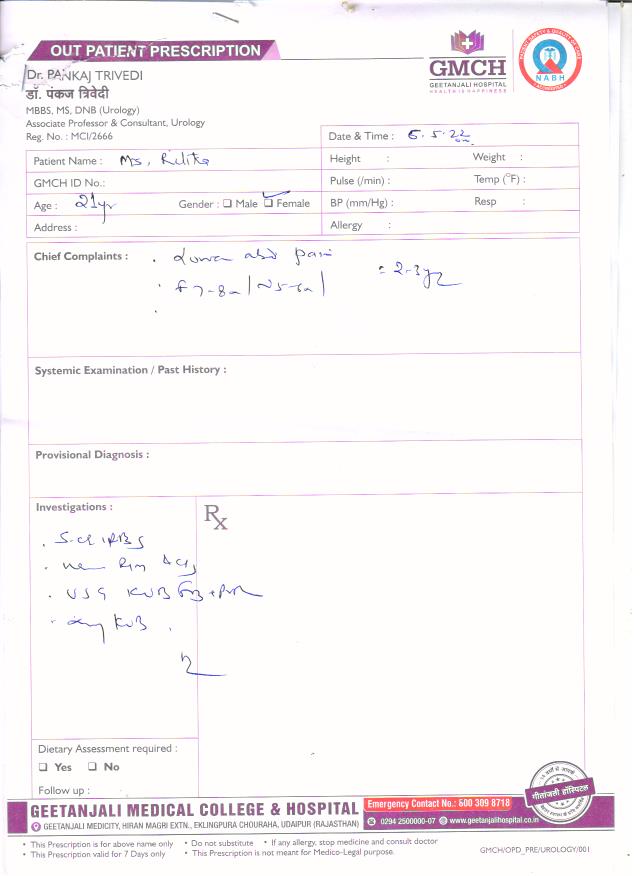 OUT PATIENT PRESCRIPTION
Dr. PANKAJ TRIVEDI
डॉ. पंकज त्रिवेदी
MBBS, MS, DNB (Urology)
Associate Professor & Consultant, Urology
Reg. No. : MCI/2666
GMCH
GEETANJALI HOSPITAL
HEALTH IS HAPPINESS
PATIENT SAFETY & QUALITY OF CARE
NABH
ACCREDITED
Date & Time : 6.5.22
Patient Name : Ms.
Height :
Weight :
GMCH ID No.:
Pulse (/min) :
Temp (°F) :
Age : 21yr
Gender : Male Female
BP (mm/Hg) :
Resp :
Address :
Allergy :
Chief Complaints :
. Lower abd pain
= 2-3yr
Systemic Examination / Past History :
Provisional Diagnosis :
Investigations :
Rx
. USG KUB
. KUB
Dietary Assessment required :
Yes No
Follow up :
गीतांजली हॉस्पिटल
GEETANJALI MEDICAL COLLEGE & HOSPITAL
Emergency Contact No.: 600 309 8718
GEETANJALI MEDICITY, HIRAN MAGRI EXTN., EKLINGPURA CHOURAHA, UDAIPUR (RAJASTHAN)
0294 2500000-07 www.geetanjalihospital.co.in
• This Prescription is for above name only • Do not substitute • If any allergy, stop medicine and consult doctor
• This Prescription valid for 7 Days only • This Prescription is not meant for Medico-Legal purpose.
GMCH/OPD_PRE/UROLOGY/001